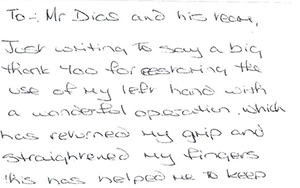 To:- Mr Dias and his team,
Just writing to say a big
thank you for restoring the
use of my left hand with
a wonderful operation, which
has returned my grip and
straightened my fingers
this has helped me to keep